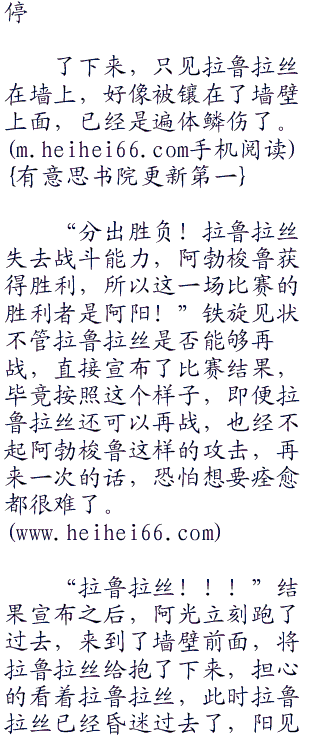 停
了下来，只见拉鲁拉丝
在墙上，好像被镶在了墙壁
上面，已经是遍体鳞伤了。
(m.heihei66.com手机阅读)
{有意思书院更新第一}
“分出胜负！拉鲁拉丝
失去战斗能力，阿勃梭鲁获
得胜利，所以这一场比赛的
胜利者是阿阳！”铁旋见状
不管拉鲁拉丝是否能够再
战，直接宣布了比赛结果，
毕竟按照这个样子，即便拉
鲁拉丝还可以再战，也经不
起阿勃梭鲁这样的攻击，再
来一次的话，恐怕想要痊愈
都很难了。
(www.heihei66.com)
“拉鲁拉丝！！！”结
果宣布之后，阿光立刻跑了
过去，来到了墙壁前面，将
拉鲁拉丝给抱了下来，担心
的看着拉鲁拉丝，此时拉鲁
拉丝已经昏迷过去了，阳见